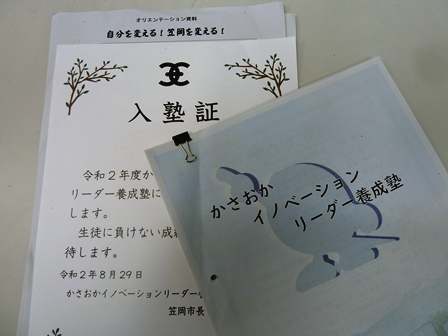 オリエンテーション資料
自分を変える!笠岡を変える!
入塾証
令和２年度か
リーダー養成塾に
します。
生徒に負けない成
待します。
令和２年８月２９日
かさおかイノベーションリーダー
笠岡市長
かさおか
イノベーション
リーダー養成塾